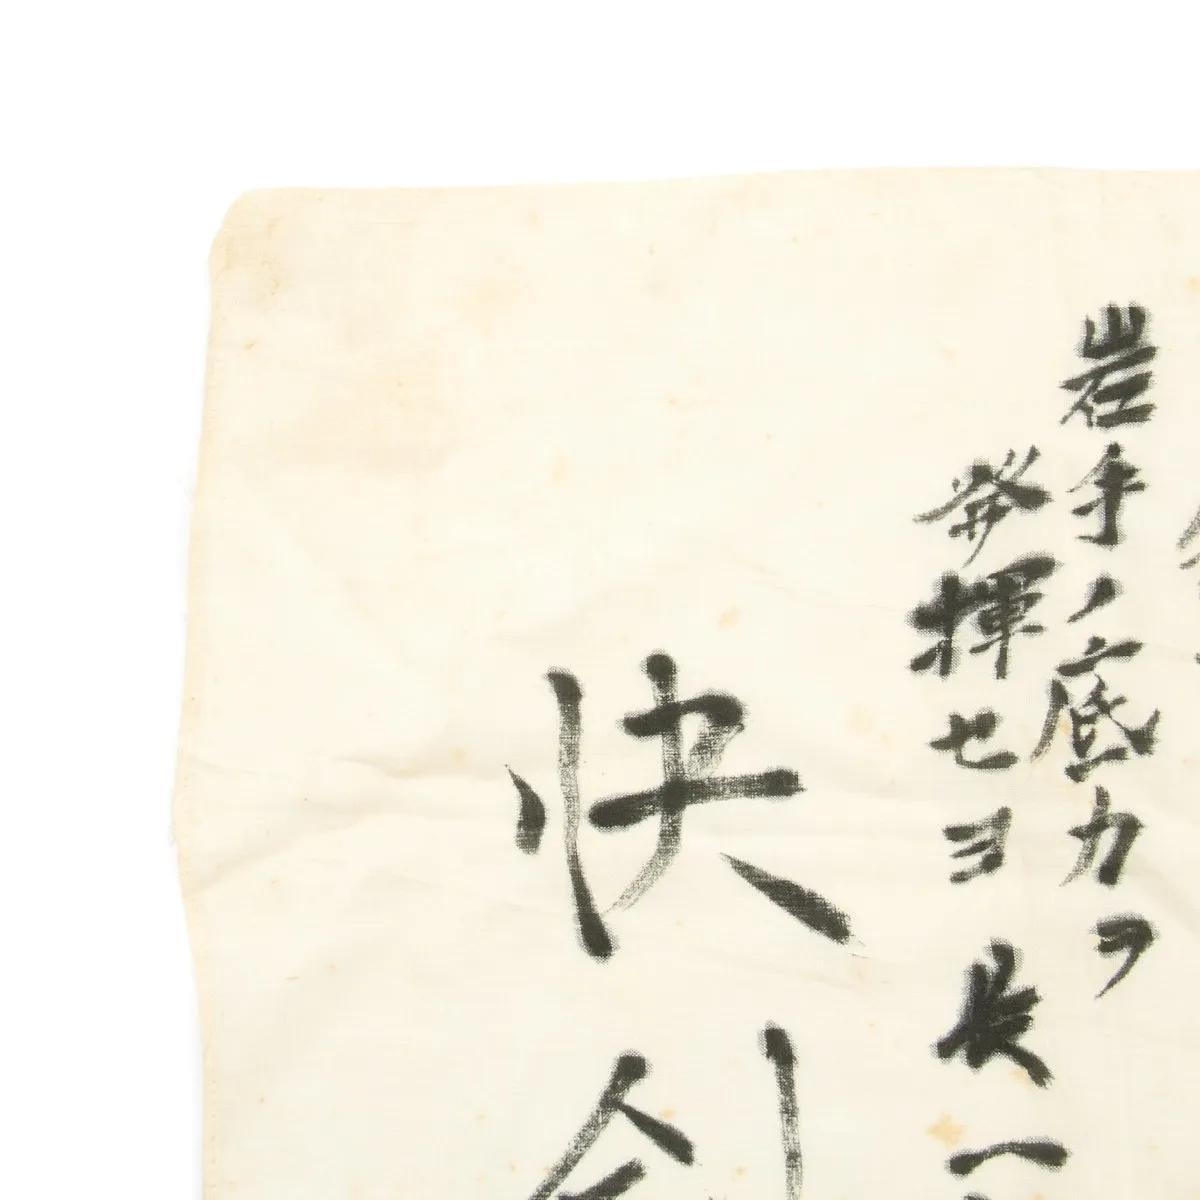 岩手ノ底力ヲ
発揮セヨ 長一
快剣